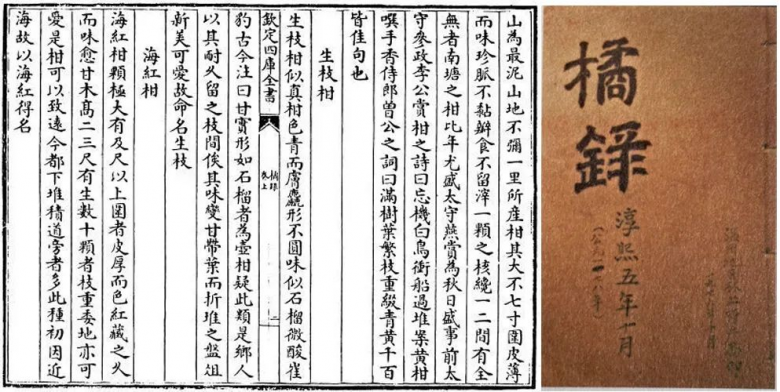 山為最泥山地不彌一里所産柑其大不七寸圍皮薄
而味珍脈不黏瓣食不留滓一顆之核纔一二間有全
無者南塘之柑比年尤盛太守燕賞為秋日盛事前太
守參政李公賞柑之詩曰忘機白鳥衝船過堆案黄柑
噀手香侍郎曾公之詞曰滿樹葉繁枝重綴青黄千百
皆佳句也
生枝柑
生枝柑似真柑色青而膚麤形不圓味似石榴微酸崔
欽定四庫全書
橘録
卷上
二
豹古今注曰甘實形如石榴者為壺柑疑此類是鄉人
以其耐久留之枝間俟其味變甘帶葉而折堆之盤俎
新美可愛故命名生枝
海紅柑
海紅柑顆極大有及尺以上圍者皮厚而色紅藏之久
而味愈甘木髙二三尺有生數十顆者枝重委地亦可
愛是柑可以致逺今都下堆積道旁者多此種初因近
海故以海紅得名
橘錄
淳熙五年十月
(公元一一七八年)